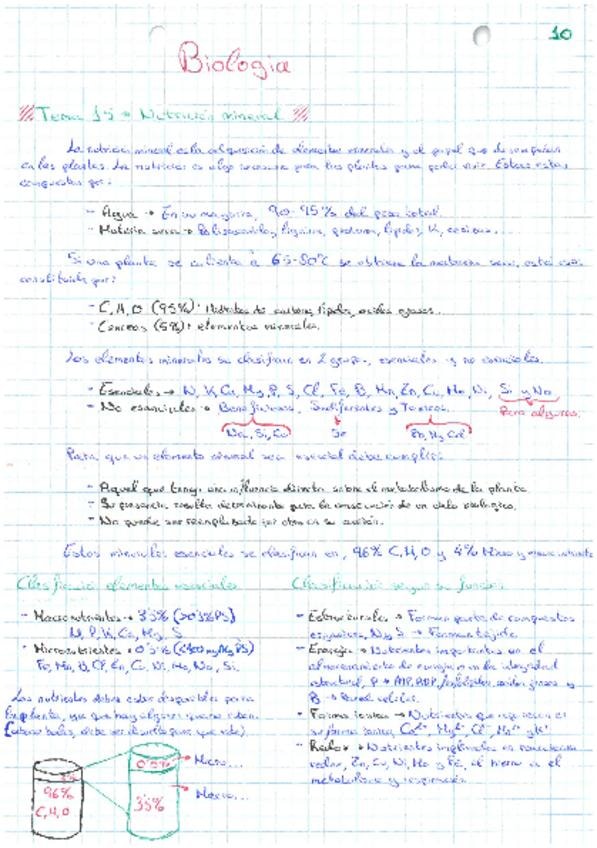 10
Biología
Tema 15 → Nutrición mineral
La nutrición mineral es la adquisición de elementos minerales y el papel que desempeñan
en las plantas. La nutrición es algo necesario para las plantas para poder vivir. Estas están
compuestas por:
- Agua → En su mayoría, 90-95% del peso total.
- Materia seca → Polisacáridos, lignina, proteínas, lípidos, K, cenizas...
Si una planta se calienta a 65-80°C se obtiene la materia seca, esta está
constituida por:
- C, H, O (95%): Hidratos de carbono, lípidos, ácidos grasos...
- Cenizas (5%): elementos minerales.
Los elementos minerales se clasifican en 2 grupos, esenciales y no esenciales.
- Esenciales → N, K, Ca, Mg, P, S, Cl, Fe, B, Mn, Zn, Cu, Mo, Ni, Si y Na
- No esenciales → Beneficiosos, Indiferentes y Tóxicos. Para algunos.
Na, Si, Co Se Pb, Hg, Cd
Para que un elemento mineral sea esencial debe cumplir:
- Aquel que tenga una influencia directa sobre el metabolismo de la planta.
- Su presencia resulta determinante para la consecución de un ciclo biológico.
- No puede ser reemplazado por otro en su acción.
Estos minerales esenciales se clasifican en, 96% C, H, O y 4% Micro y macronutrientes
Clasificación elementos esenciales
- Macronutrientes → 3'5% (>0'3% PS)
N, P, K, Ca, Mg, S
- Micronutrientes → 0'5% (<100 mg/kg PS)
Fe, Mn, B, Cl, Zn, Cu, Ni, Mo, Na, Si.
Los nutrientes deben estar disponibles para
la planta, ya que hay algunos que no
96%
C, H, O
0'5% → Micro...
3'5% → Macro...
Clasificación según su función
- Estructurales → Forman parte de compuestos
orgánicos, N y S → Forman tejido.
- Energía → Nutrientes importantes en el
almacenamiento de energía o en la integridad
estructural, P → ATP, ADP, ácidos grasos y
B → Pared celular.
- Forma iónica → Nutrientes que aparecen en
su forma iónica, Ca²⁺, Mg²⁺, Cl⁻, Mn²⁺ y K⁺
- Redox → Nutrientes implicados en reacciones
redox, Zn, Cu, Ni, Mo y Fe, el hierro en el
metabolismo y respiración.